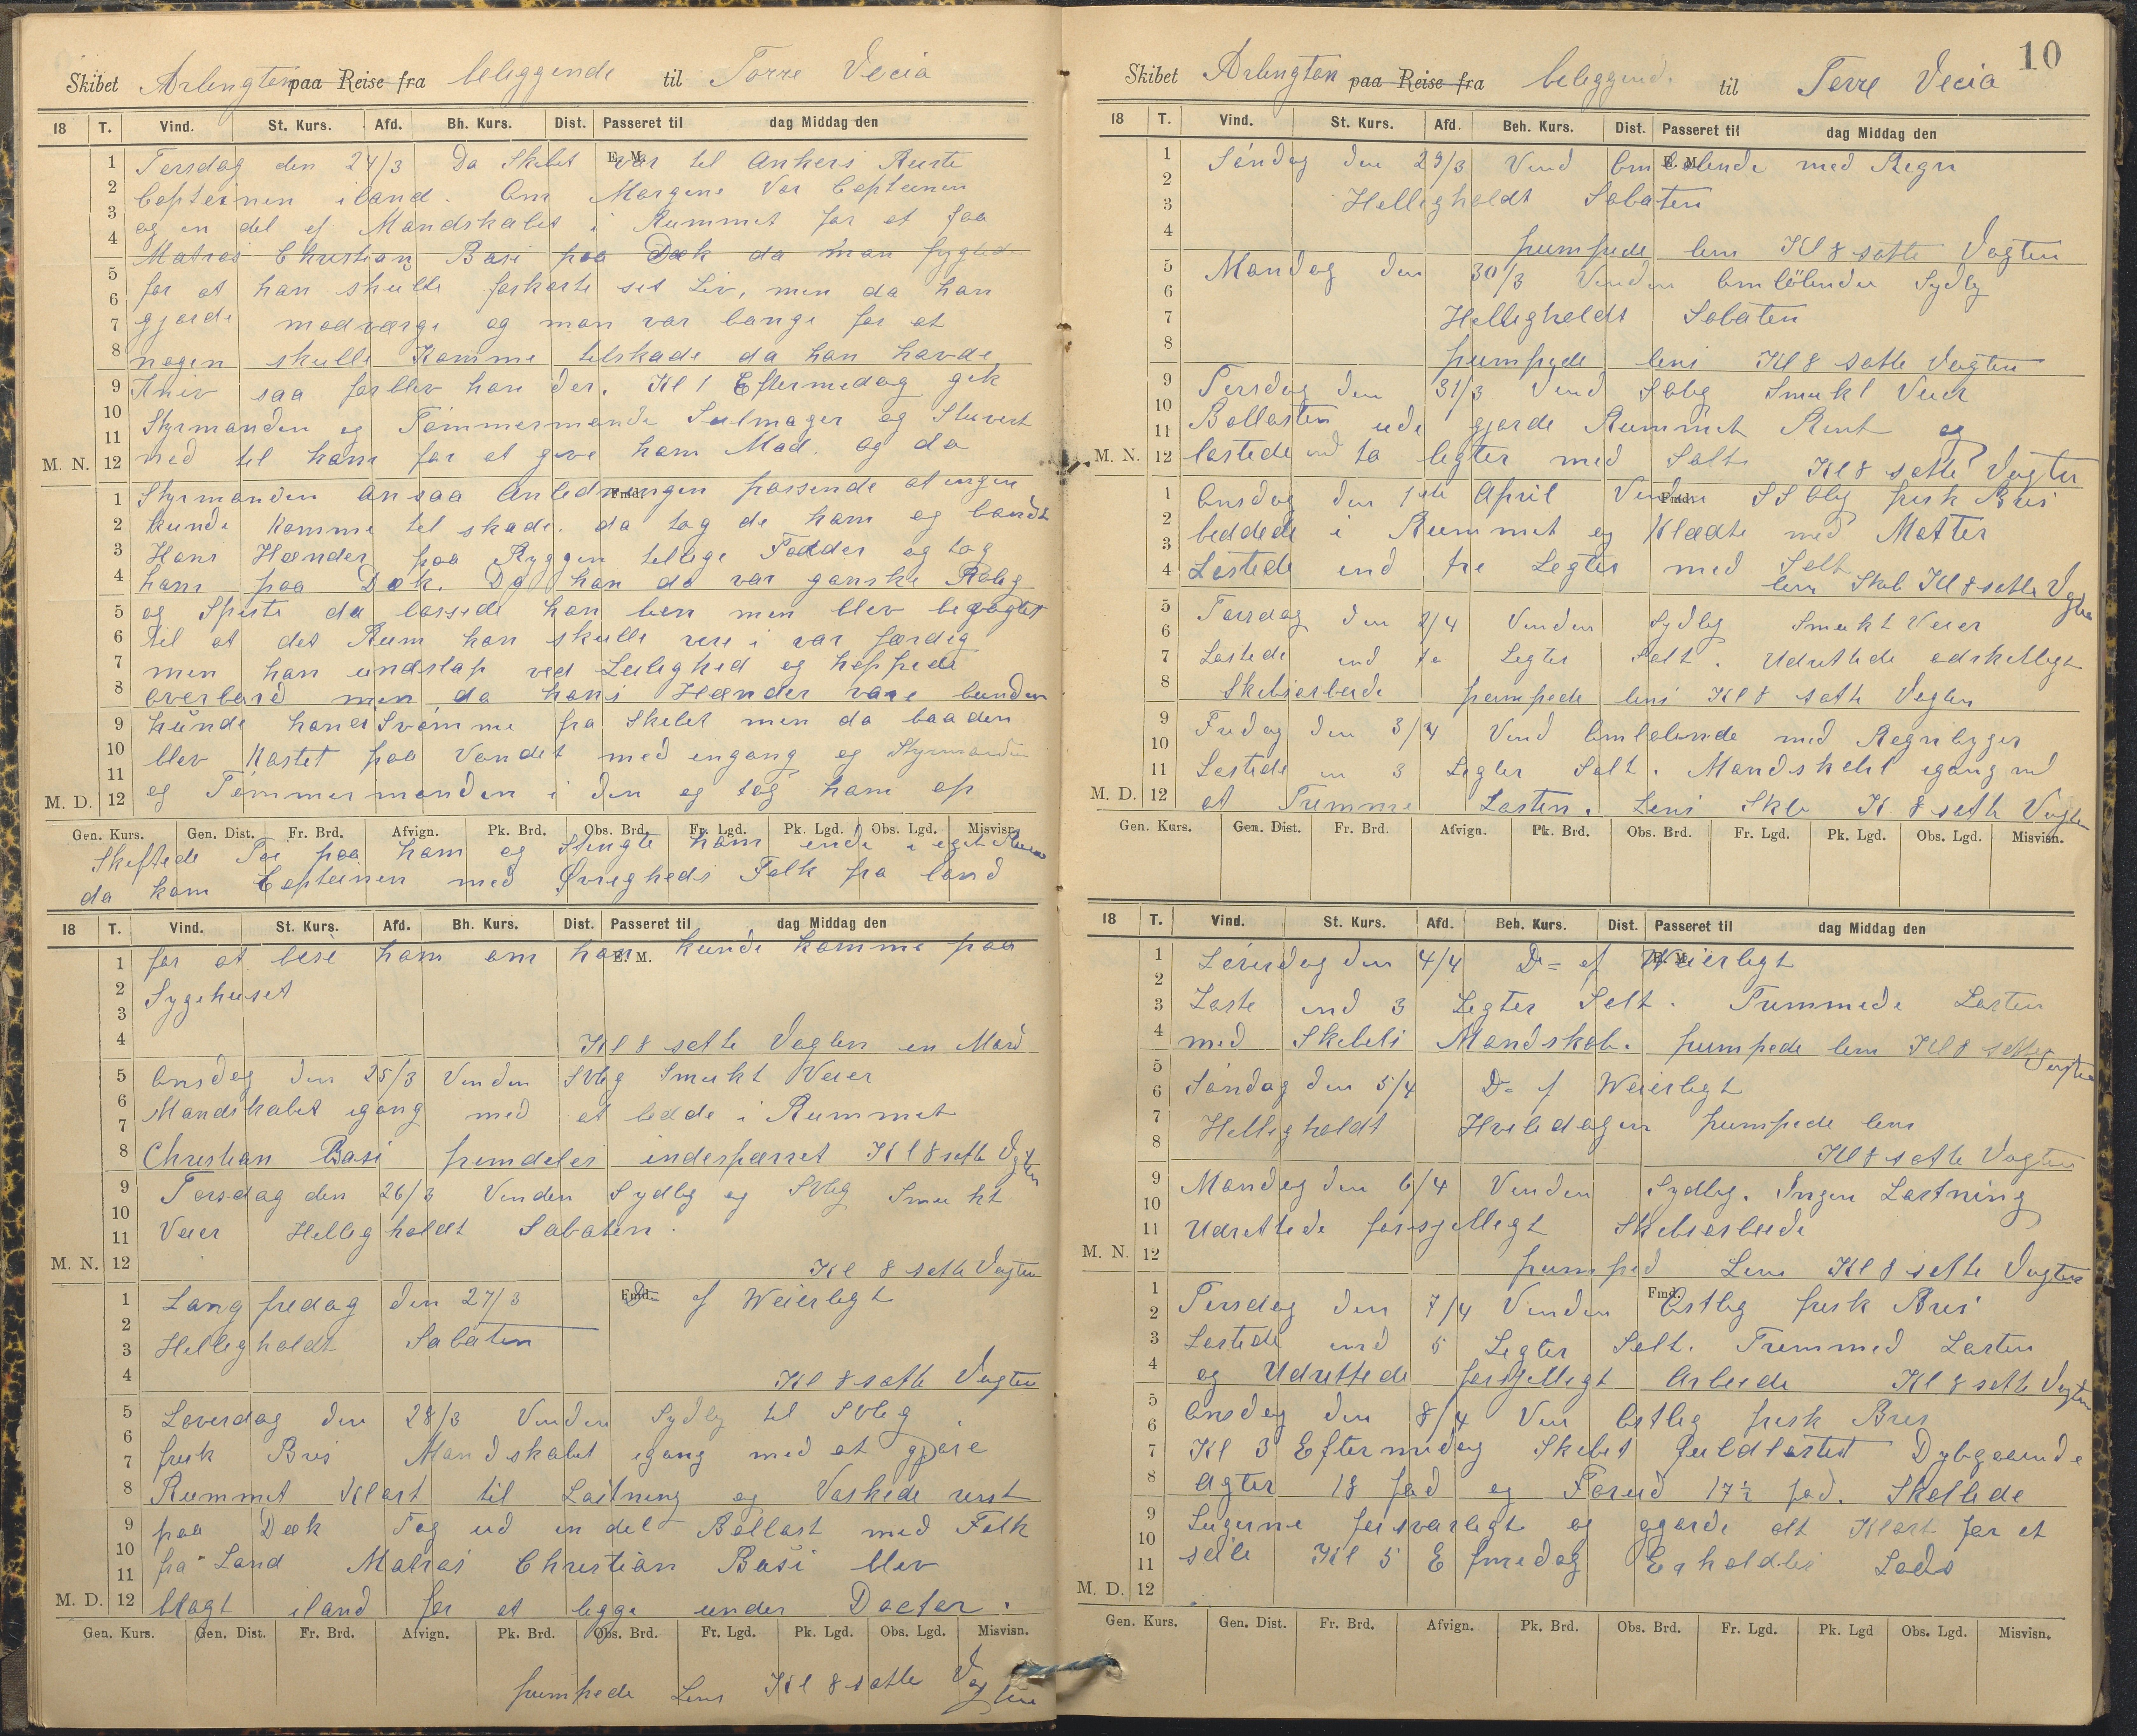 Skibet Arlington paa Reise fra beleggende til Torre Vecia
18 T. Vind. St. Kurs. Afd. Bh. Kurs. Dist. Passeret til dag Middag den
E. M.
1 Tersdag den 24/3 Da Skibet var til Ankers Reiste
2 Capteinen iland. Om Morgene Var Capteinen
3 og en del af Mandskabet i Rummet for at faa
4 Matros Christian Basi paa Dæk da man frygted
5 for at han skulle forkorte set Liv, men da han
6 gjorde modværge og man var bange for at
7 nogen skulle Komme tilskade da han havde
8 Kniv saa forblev han der. Kl 1 Eftermedag gik
9 Styrmanden og Tömmermand Seilmager og Stuvert
10 ned til ham for at give ham Mad. og da
11
M. N. 12
Fmd.
1 Styrmanden ansaa Anledningen passende at ingen
2 kunde komme til skade. da tog de ham og bandt
3 Hans Hænder paa Ryggen tellige Fødder og tog
4 ham paa Dæk. Da han da var ganske Rolig
5 og Spiste da lossede han ben men blev bevogtet
6 til at det Rum han skulle vere i var færdig
7 men han undslap ved Leilighed og hoppede
8 overbord men da hans Hænder vare bunden
9 kunde han ei Svömme fra Skibet men da baaden
10 blev Kastet paa Vandet med engang og Styrmanden
11 og Tömmermanden i den og tog ham op
M. D. 12
Gen. Kurs. Gen. Dist. Fr. Brd. Afvign. Pk. Brd. Obs. Brd. Fr. Lgd. Pk. Lgd. Obs. Lgd. Misvisn.
Skiftede Töi paa ham og Stengte ham inde i eget Rum
da kom Capteinen med Øvrigheds Folk fra land
18 T. Vind. St. Kurs. Afd. Bh. Kurs. Dist. Passeret til dag Middag den
E. M.
1 for at bese ham om han kunde komme paa
2 Sygehuset
3
4 Kl 8 satte Vagten en Mand
5 Onsdag den 25/3 Vinden SVlig Smukt Veier
6 Mandskabet igang med at ledde i Rummet
7
8 Christian Basi fremdeles indespærret Kl 8 satte Vagten
9 Torsdag den 26/3 Vinden Sydlig og SVlig Smukt
10 Veier Helligholdt Sabaten.
11
M. N. 12 Kl 8 satte Vagten
Fmd.
1 Langfredag den 27/3 D= af Weierligt
2 Helligholdt Sabaten
3
4 Kl 8 satte Vagten
5 Löverdag den 28/3 Vinden Sydlig til SVlig
6 frisk Bris Mandskabet igang med at gjöre
7
8 Rummet Klart til Lastning og Vaskede rust
9 paa Dæk Tog ud en del Ballast med Folk
10 fra Land Matros Christian Basi blev
11
M. D. 12 bragt iland for at legge under Doctor.
Gen. Kurs. Gen. Dist. Fr. Brd. Afvign. Pk. Brd. Obs. Brd. Fr. Lgd. Pk. Lgd. Obs. Lgd. Misvisn.
pumpede Lens Kl 8 satte Vagten
10
Skibet Arlington paa Reise fra beleggende til Torre Vecia
18 T. Vind. St. Kurs. Afd. Beh. Kurs. Dist. Passeret til dag Middag den
E. M.
1 Söndag den 29/3 Vind Omlobende med Regn
2 Helligholdt Sabaten
3
4 pumpede lens Kl 8 satte Vagten
5 Mandag den 30/3 Vinden Omlöbende Sydlig
6
7 Helligholdt Sabaten
8 pumpede lens Kl 8 satte Vagten
9 Tersdag den 31/3 Vind SOlig Smukt Veier
10 Ballasten ude gjorde Rummet Rent og
11
M. N. 12 lastede ind to legter med Salt Kl 8 satte Vagten
Fmd.
1 Onsdag den 1ste April Vinden SSOlig frisk Bris
2 beddede i Rummet og Klædte med Matter
3
4 Lastede ind tre Legter med Salt
lens Skib Kl 8 satte Vagten
5 Torsdag den 2/4 Vinden Sydlig Smukt Veier
6
7 Lastede ind to Legter Salt. Udrettede adskelligt
8 Skibsarbeide pumpede lens Kl 8 satte Vagten
9 Fredag den 3/4 Vind Omlobende med Regnbyger
10
11 Lastede in 3 Legter Salt. Mandskabet igang med
M. D. 12 at Trimme Lasten. Lens Skib Kl 8 satte Vagten
Gen. Kurs. Gen. Dist. Fr. Brd. Afvign. Pk. Brd. Obs. Brd. Fr. Lgd. Pk. Lgd. Obs. Lgd. Misvisn.
18 T. Vind. St. Kurs. Afd. Beh. Kurs. Dist. Passeret til dag Middag den
E. M.
1 Löverdag den 4/4 D= af Weierligt
2
3 Laste ind 3 Legter Salt. Trimmede Lasten
4 med Skibets Mandskab. pumpede lens Kl 8 satte Vagten
5
6 Söndag den 5/4 D= af Weierligt
7 Helligholdt Hviledagen pumpede lens
8 Kl 8 satte Vagten
9 Mandag den 6/4 Vinden Sydlig. Ingen Lastning
10
11 Udrettede forsjelligt Skibsarbeide
M. N. 12 pumped Lens Kl 8 satte Vagten
Fmd.
1 Tirsdag den 7/4 Vinden Ostlig frisk Bris
2
3 Lastede ind 5 Legter Salt. Trimmed Lasten
4 og Udrettede forsjelligt Arbeide Kl 8 satte Vagten
5 Onsdag den 8/4 Vin Ostlig frisk Bris
6
7 Kl 3 Eftermidag Skibet fuldlastet Dybgaaende
8 Agter 18 fod og Forud 17½ fod. Skallede
9 Lugerne forsvarligt og gjorde alt Klart for at
10 seile Kl 5 Efmedag Erholdtes Lods
11
M. D. 12
Gen. Kurs. Gen. Dist. Fr. Brd. Afvign. Pk. Brd. Obs. Brd. Fr. Lgd. Pk. Lgd Obs. Lgd. Misvisn.